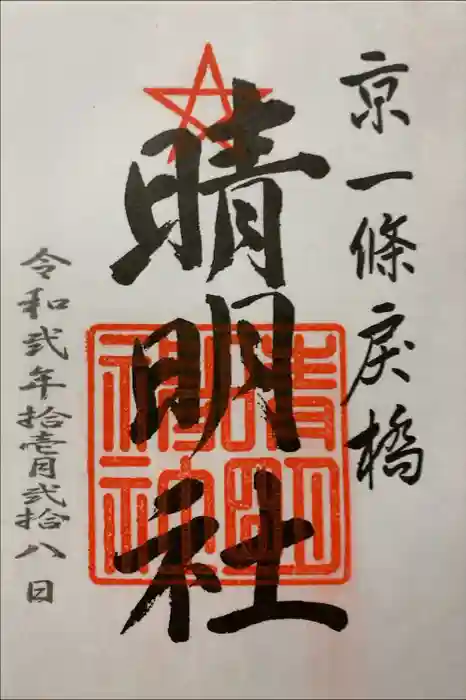 京一條戻橋
晴明社
晴明神社
令和弐年拾壱月弐拾八日